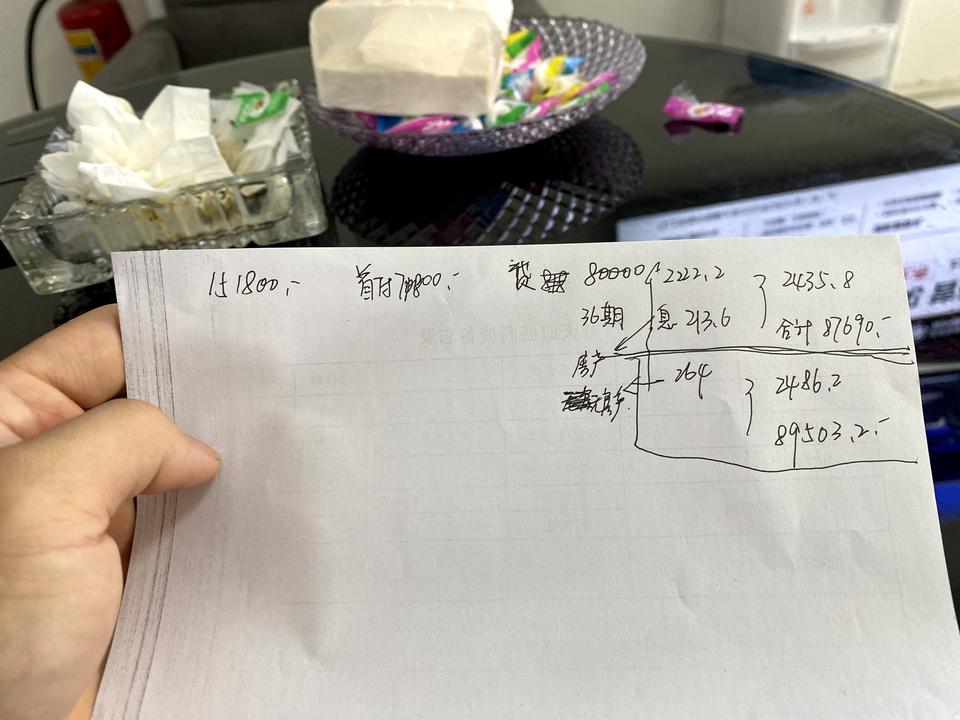 151800.- 首付71800.- 贷 80000 2222.2 2435.8
36期 息 213.6 合计 87690.-
房产 264 2486.2
无房产. 89503.2.-